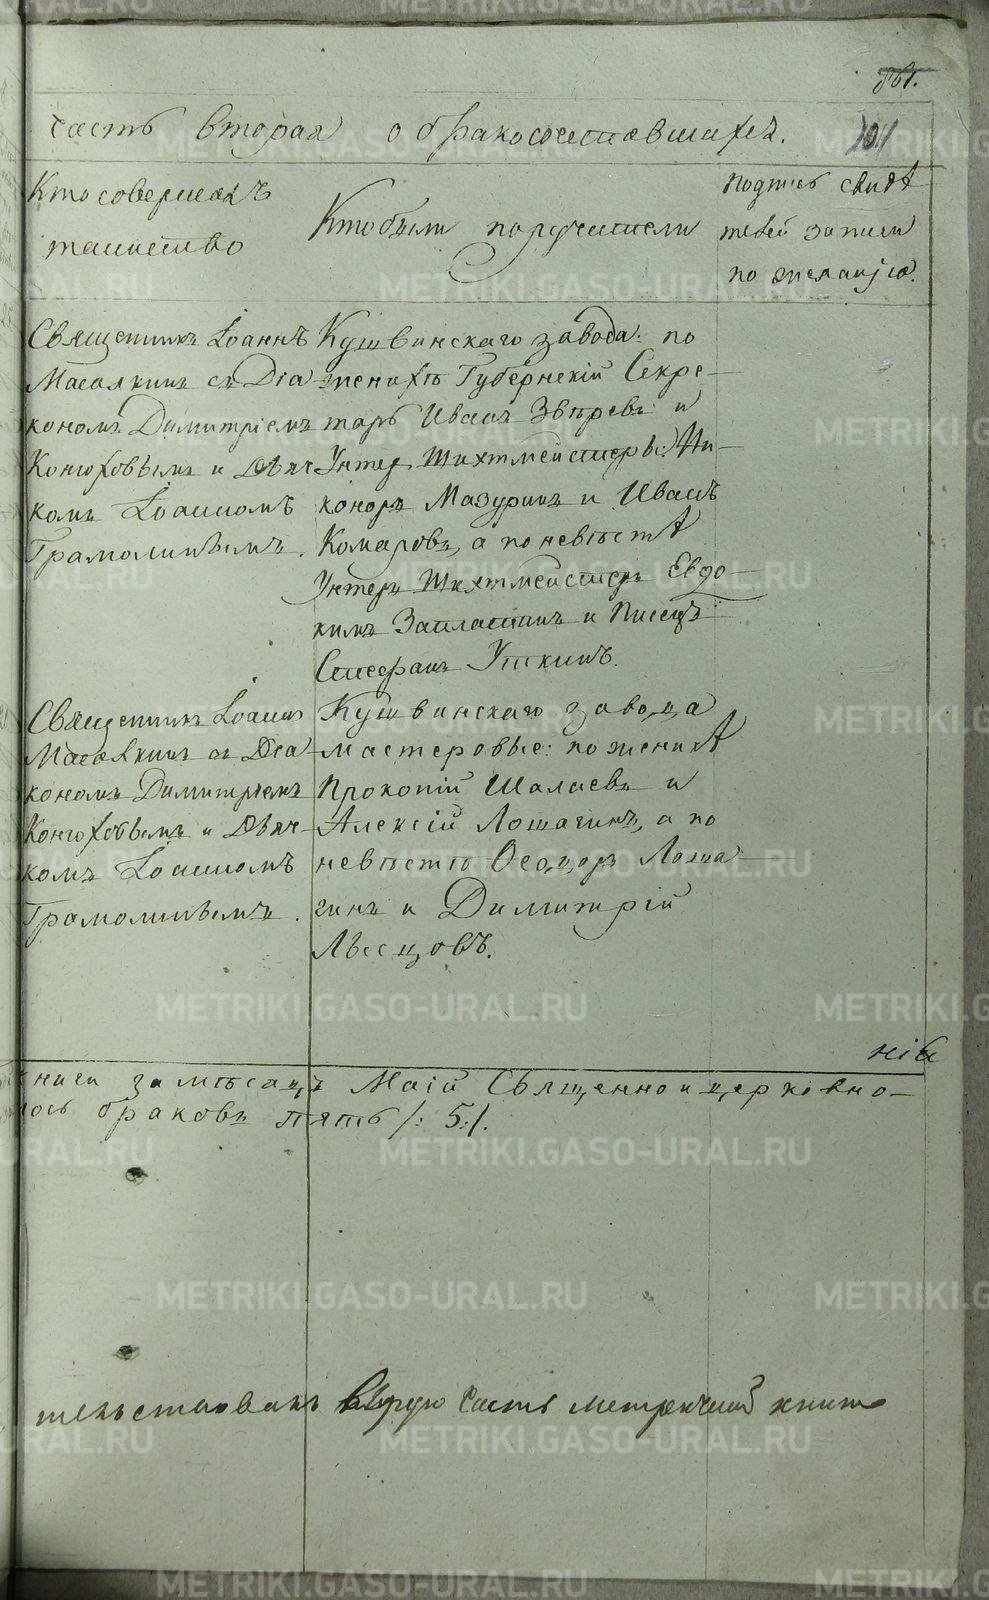 861.
часть вторая о бракосочетавшихся. 101
Кто совершалъ
таинство
Кто были поручители
подпись свидѣ
телей записи
по желанію.
Священникъ Іоаннъ
Масалкинъ съ Діа
кономъ Димитріемъ
Конюховымъ и Дьяч
комъ Іоанномъ
Грамолинымъ.
Кушвинскаго завода: по
женихѣ Губернскій Секре-
тарь Иванъ Звѣревъ и
Унтер Шихтмейстеры: Ни-
коноръ Мазуринъ и Иванъ
Комаровъ, а по невѣстѣ
Унтеръ Шихтмейстеръ Евдо-
кимъ Заплатинъ и Писецъ
Стефанъ Уткинъ.
Священникъ Іоаннъ
Масалкинъ съ Діа
кономъ Димитріемъ
Конюховымъ и Дьяч-
комъ Іоанномъ
Грамолинымъ.
Кушвинскаго завода
мастеровые: по женихѣ
Прокопій Шалаевъ и
Алексій Лошагинъ, а по
невѣстѣ Ѳеодоръ Лоша-
гинъ и Димитрій
Лѣсцовъ.
нія
книги за мѣсяцъ Маій Священно и церковно-
лось браковъ пять /: 5:/.
тельствовалъ вторую часть метрической книги
METRIKI.GASO-URAL.RU